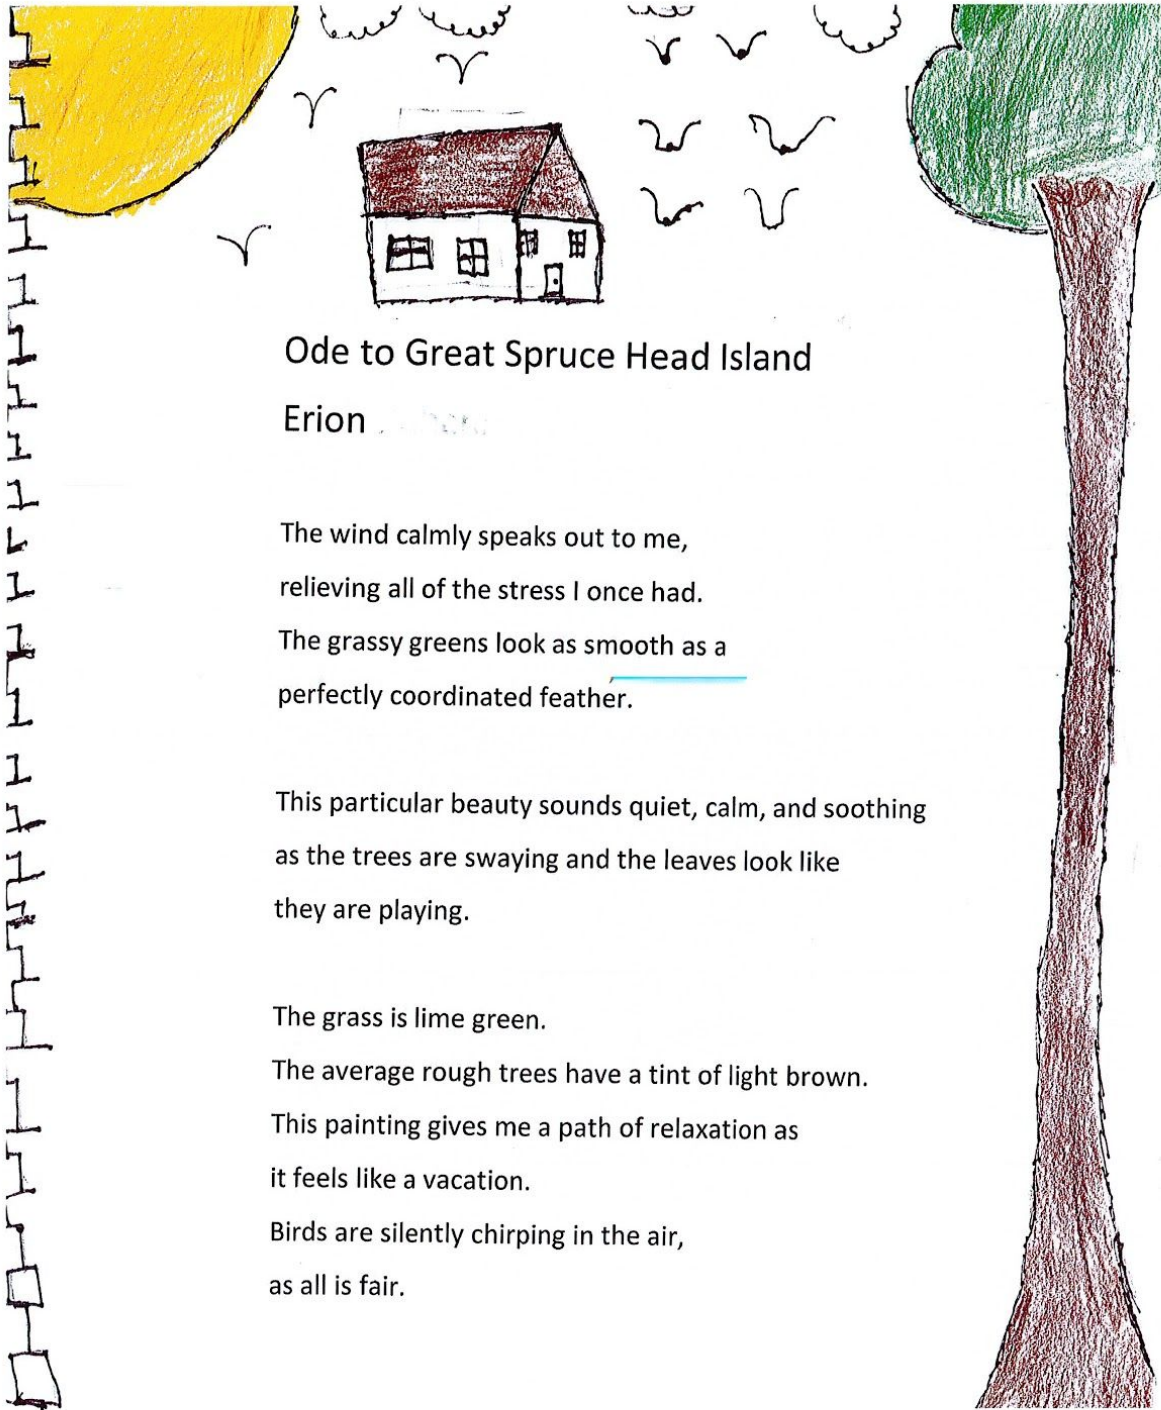 Ode to Great Spruce Head Island
Erion
The wind calmly speaks out to me,
relieving all of the stress I once had.
The grassy greens look as smooth as a
perfectly coordinated feather.
This particular beauty sounds quiet, calm, and soothing
as the trees are swaying and the leaves look like
they are playing.
The grass is lime green.
The average rough trees have a tint of light brown.
This painting gives me a path of relaxation as
it feels like a vacation.
Birds are silently chirping in the air,
as all is fair.